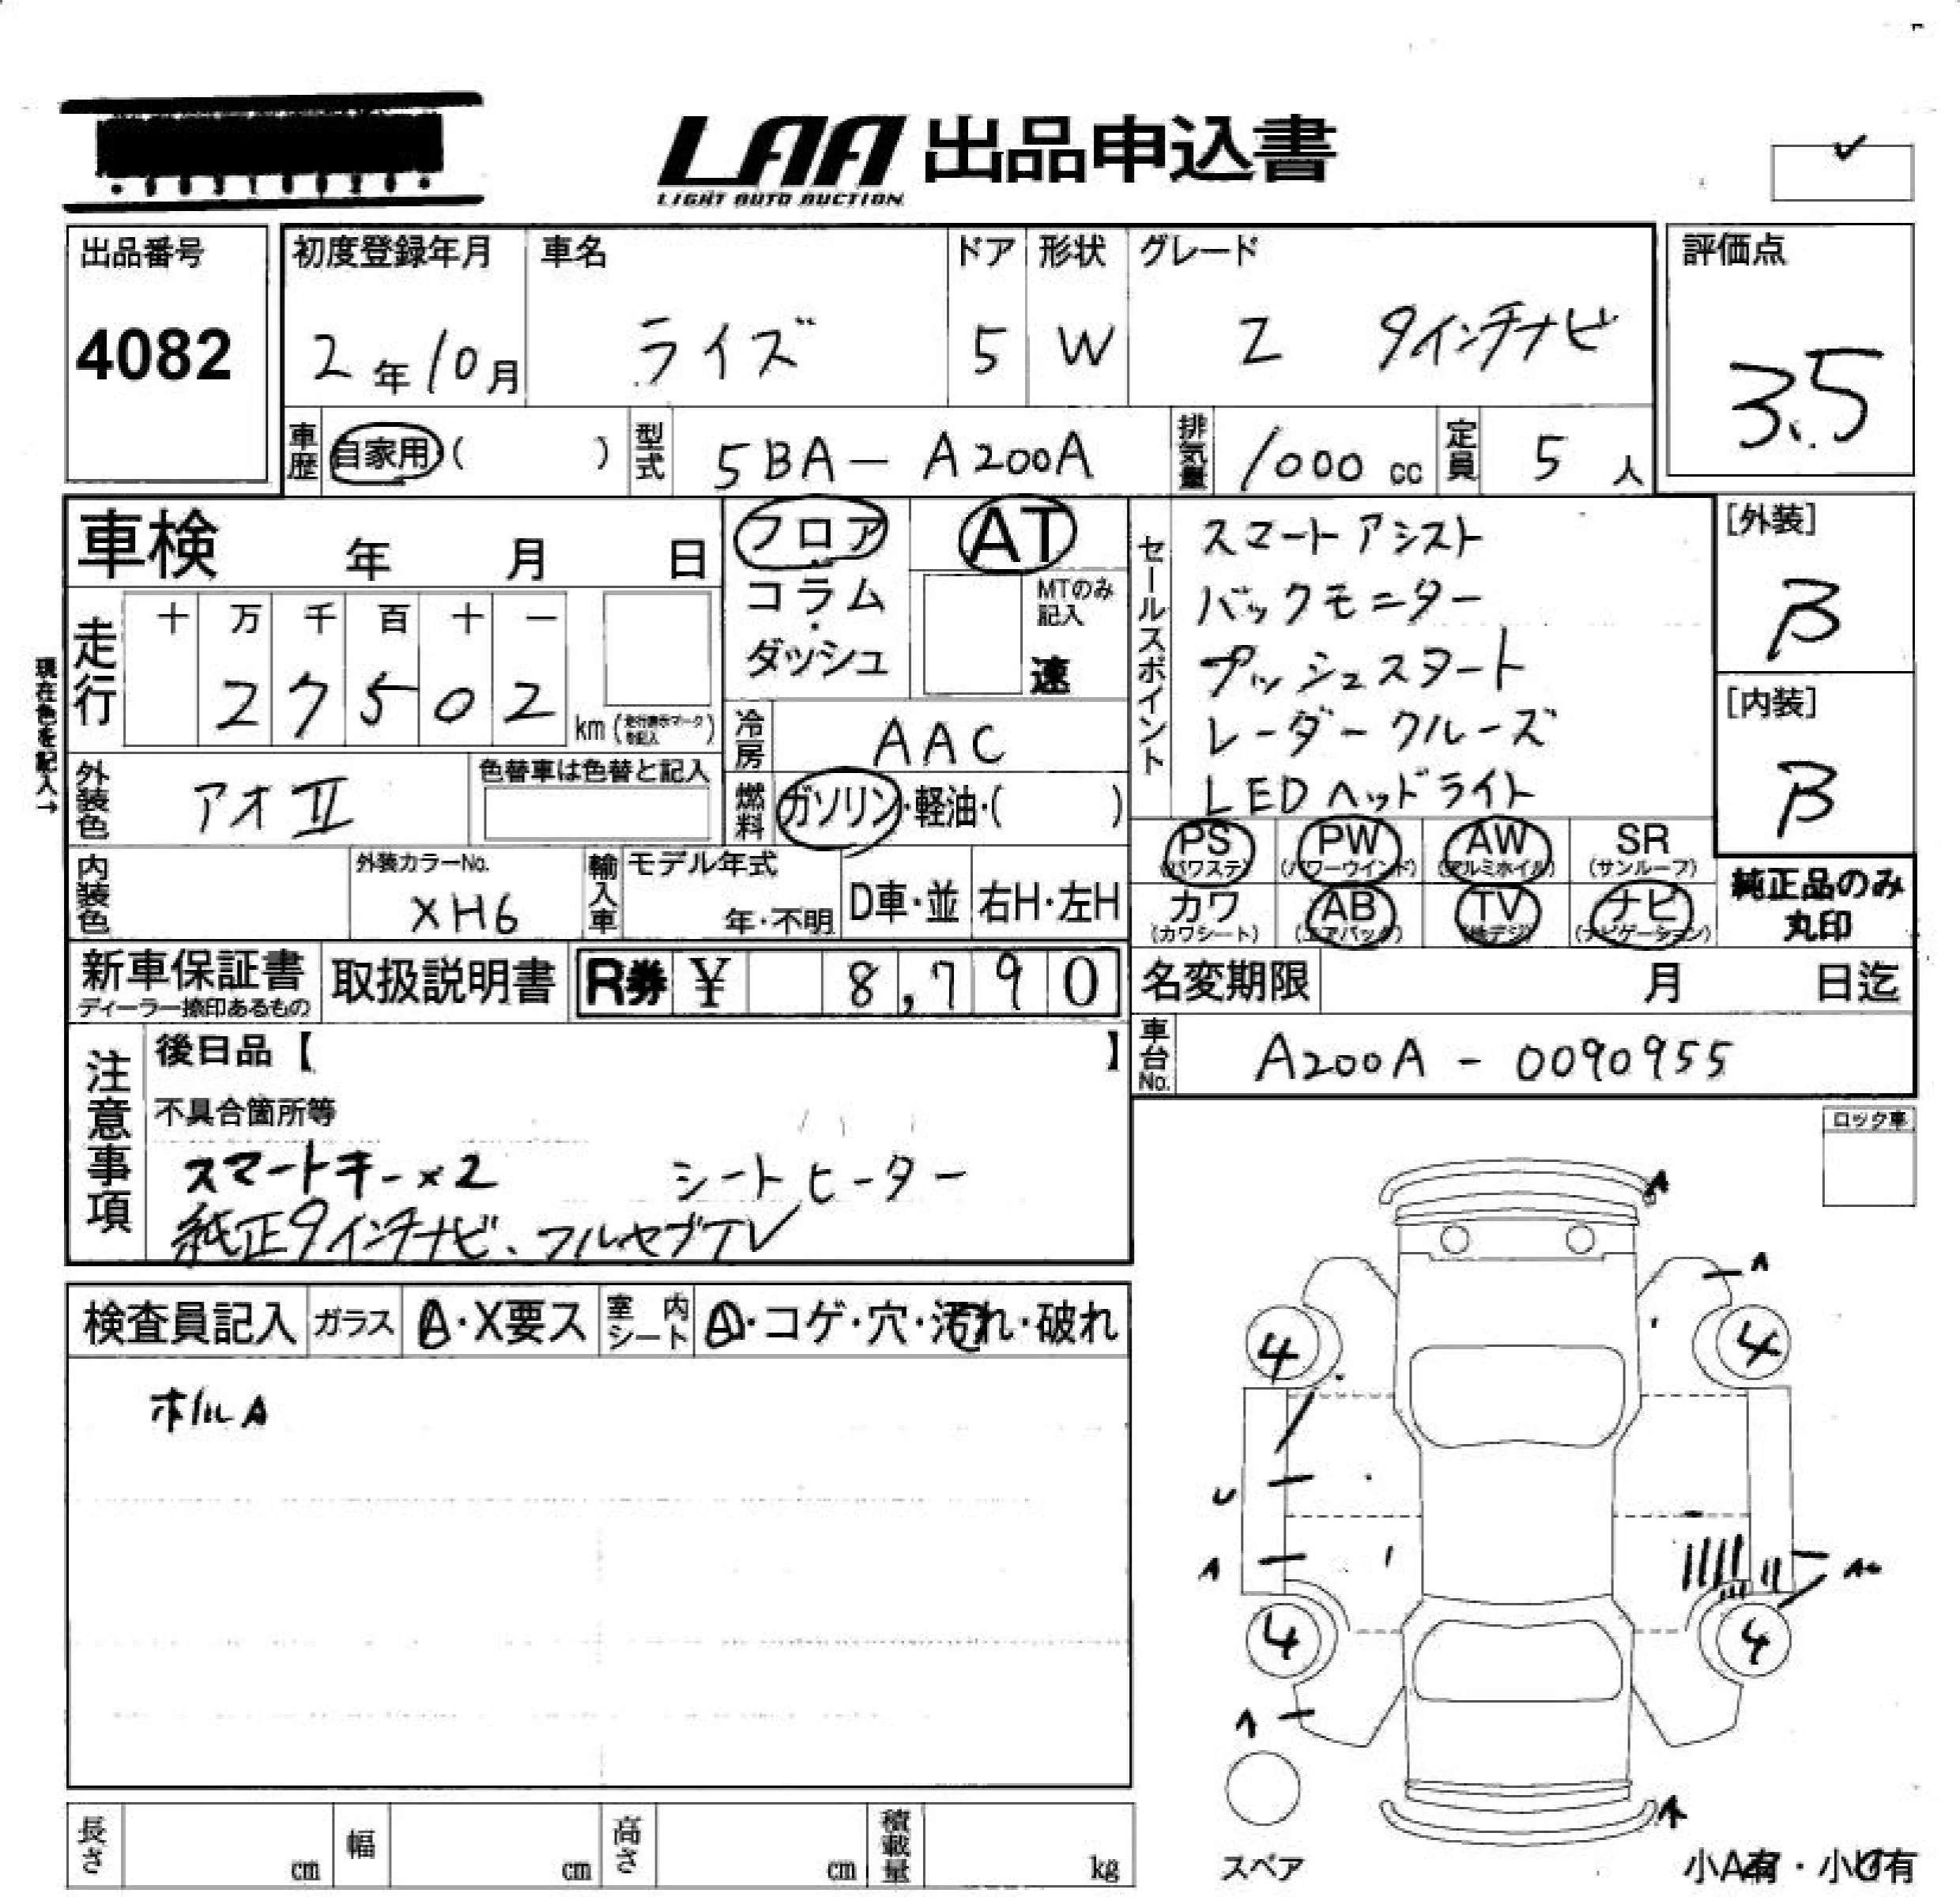 LAA 出品申込書
LIGHT AUTO AUCTION
出品番号
4082
初度登録年月
2年10月
車名
ライズ
ドア
5
形状
W
グレード
Z 9インチナビ
評価点
3.5
車歴
自家用 ( )
型式
5BA-A200A
排気量
1000 cc
定員
5 人
車検 年 月 日
フロア
コラム
ダッシュ
AT
MTのみ記入
速
セールスポイント
スマートアシスト
バックモニター
プッシュスタート
レーダークルーズ
LEDヘッドライト
[外装]
B
[内装]
B
現在色を記入→
走行
十 万 千 百 十 一
2 7 5 0 2
km
冷房
AAC
外装色
アオⅡ
色替車は色替と記入
燃料
ガソリン・軽油・( )
PS
(パワステ)
PW
(パワーウインド)
AW
(アルミホイル)
SR
(サンルーフ)
カワ
(カワシート)
AB
(エアバック)
TV
(地デジ)
ナビ
(ナビゲーション)
純正品のみ
丸印
内装色
外装カラーNo.
XH6
輸入車
モデル年式
年・不明
D車・並
右H・左H
新車保証書
ディーラー捺印あるもの
取扱説明書
R券 ¥ 8,790
名変期限 月 日迄
車台No.
A200A - 0090955
注意事項
後日品【 】
不具合箇所等
スマートキー×2 シートヒーター
純正9インチナビ、フルセグTV
ロック車
検査員記入
ガラス
A・X要ス
室内シート
A・コゲ・穴・汚れ・破れ
ホイルA
A
A
4
4
U
A
4
4
A
A
スペア
小A有・小U有
長さ cm
幅 cm
高さ cm
積載量 kg